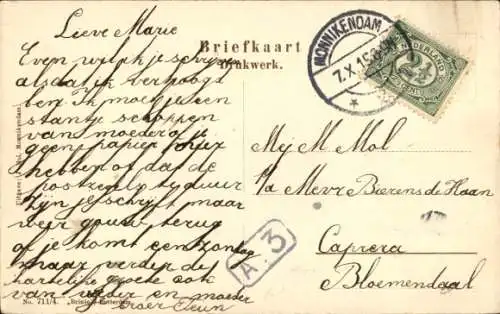 Lieve Marie
Even wil ik je schrijven
als dat ik verhoogd
ben. Ik moet je een
standje schoppen
van moeder of je
geen papier
hebben of dat de
postzegels te duur
zijn je schrijft maar
weer gouw terug
of je komt een zondag
maar verder de
hartelijke groete ook
van vader en moeder
broer Teun
Briefkaart
Drukwerk.
MONNIKENDAM
7.X.15
NEDERLAND
2½
CENT
Mej M Mol
p/a Mevr Bierens de Haan
Caprera
Bloemendaal
A.3
No. 711/4. Rotterdam.